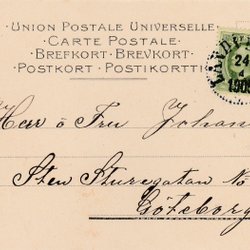 UNION POSTALE UNIVERSELLE
CARTE POSTALE
BREFKORT-BREVKORT
POSTKORT-POSTIKORTTI
24
Herr o Fru Johan
Sten Sturegatan No
Göteborg